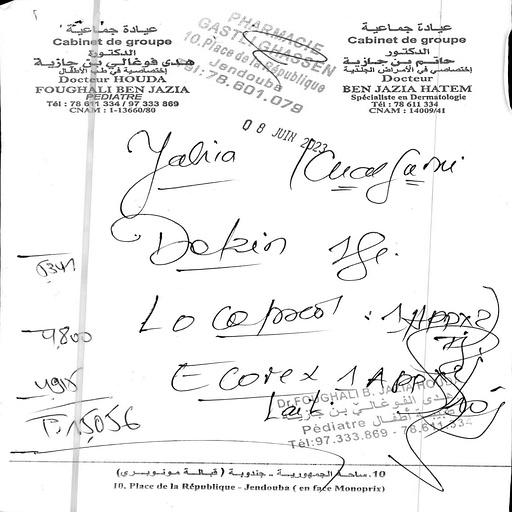 عيادة جماعية
Cabinet de groupe
الدكتورة
هدى فوغالي بن جازية
إختصاصية في طب الأطفال
Docteur HOUDA
FOUGHALI BEN JAZIA
PEDIATRE
Tél : 78 611 334 / 97 333 869
CNAM : 1-13660/80
PHARMACIE
GASTLI GHASSEN
10, Place de la République
Jendouba
Tél: 78.601.079
عيادة جماعية
Cabinet de groupe
الدكتور
حاتم بن جازية
إختصاصي في الأمراض الجلدية
Docteur
BEN JAZIA HATEM
Spécialiste en Dermatologie
Tél : 78 611 334
CNAM : 14009/41
08 JUIN 2023
Yahia
Dakin 1
Locapred : 1 App x 2
9,800
Ecorex 1 App x
Dr FOUGHALI B. JAZIA HOUDA
Pédiatre
Tél:97.333.869 - 78.611.334
10، ساحة الجمهورية - جندوبة (قبالة مونوبري)
10, Place de la République - Jendouba ( en face Monoprix)